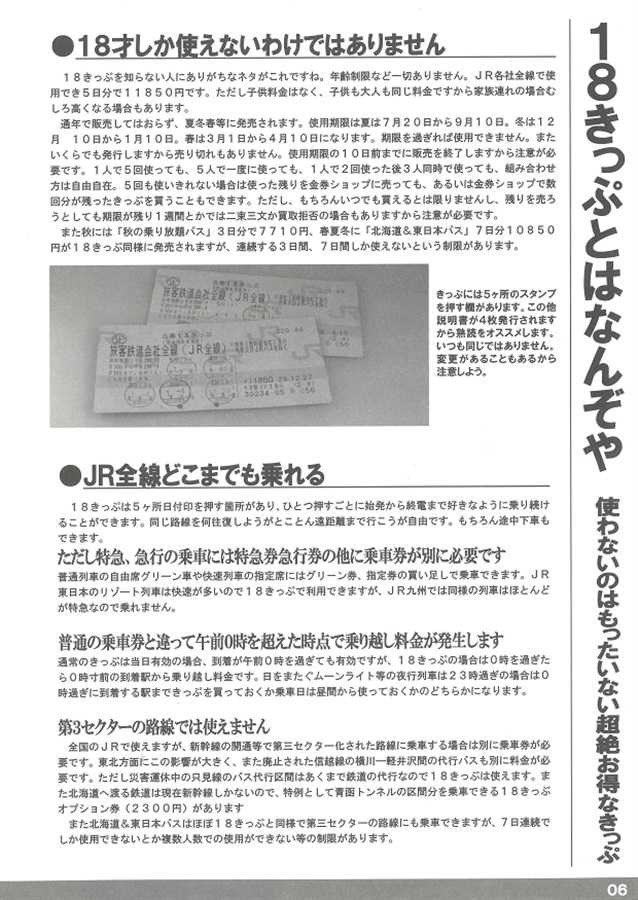 18きっぷとはなんぞや 使わないのはもったいない超絶お得なきっぷ
●18才しか使えないわけではありません
18きっぷを知らない人にありがちなネタがこれですね。年齢制限など一切ありません。JR各社全線で使
用でき5日分で11850円です。ただし子供料金はなく、子供も大人も同じ料金ですから家族連れの場合む
しろ高くなる場合もあります。
通年で販売してはおらず、夏冬春等に発売されます。使用期限は夏は7月20日から9月10日。冬は12
月 10日から1月10日。春は3月1日から4月10日になります。期限を過ぎれば使用できません。また
いくらでも発行しますから売り切れもありません。使用期限の10日前までに販売を終了しますから注意が必
要です。1人で5回使っても、5人で一度に使っても、1人で2回使った後3人同時で使っても、組み合わせ
方は自由自在。5回も使いきれない場合は使った残りを金券ショップに売っても、あるいは金券ショップで数
回分が残ったきっぷを買うこともできます。ただし、もちろんいつでも買えるとは限りませんし、残りを売ろ
うとしても期限が残り1週間とかでは二束三文か買取拒否の場合もありますから注意が必要です。
また秋には「秋の乗り放題パス」3日分で7710円、春夏冬に「北海道&東日本パス」7日分10850
円が18きっぷ同様に発売されますが、連続する3日間、7日間しか使えないという制限があります。
旅客鉄道会社全線(JR全線)
旅客鉄道会社全線(JR全線)
¥11850
30234-05
きっぷには5ヶ所のスタンプ
を押す欄があります。この他
説明書が4枚発行されます
から熟読をオススメします。
いつも同じではありません。
変更があることもあるから
注意しよう。
●JR全線どこまでも乗れる
18きっぷは5ヶ所日付印を押す箇所があり、ひとつ押すごとに始発から終電まで好きなように乗り続け
ることができます。同じ路線を何往復しようがとことん遠距離まで行こうが自由です。もちろん途中下車も
できます。
ただし特急、急行の乗車には特急券急行券の他に乗車券が別に必要です
普通列車の自由席グリーン車や快速列車の指定席にはグリーン券、指定券の買い足しで乗車できます。JR
東日本のリゾート列車は快速が多いので18きっぷで利用できますが、JR九州では同様の列車はほとんど
が特急なので乗れません。
普通の乗車券と違って午前0時を超えた時点で乗り越し料金が発生します
通常のきっぷは当日有効の場合、到着が午前0時を過ぎても有効ですが、18きっぷの場合は0時を過ぎた
ら0時寸前の到着駅から乗り越し料金です。日をまたぐムーンライト等の夜行列車は23時過ぎの場合は0
時過ぎに到着する駅まできっぷを買っておくか乗車日は昼間から使っておくかのどちらかになります。
第3セクターの路線では使えません
全国のJRで使えますが、新幹線の開通等で第三セクター化された路線に乗車する場合は別に乗車券が必
要です。東北方面にこの影響が大きく、また廃止された信越線の横川ー軽井沢間の代行バスも別に料金が必
要です。ただし災害運休中の只見線のバス代行区間はあくまで鉄道の代行なので18きっぷは使えます。ま
た北海道へ渡る鉄道は現在新幹線しかないので、特例として青函トンネルの区間分を乗車できる18きっぷ
オプション券(2300円)があります
また北海道&東日本パスはほぼ18きっぷと同様で第三セクターの路線にも乗車できますが、7日連続で
しか使用できないとか複数人数での使用ができない等の制限があります。
06